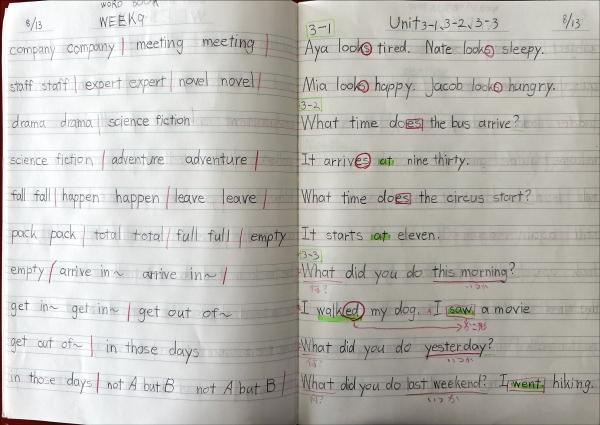 WORD BOOK
8/13 WEEK9
company company | meeting meeting |
staff staff | expert expert | novel novel |
drama drama | science fiction
science fiction | adventure adventure |
fall fall | happen happen | leave leave |
pack pack | total total | full full | empty
empty | arrive in~ arrive in~ |
get in~ get in~ | get out of~
get out of~ | in those days
in those days | not A but B not A but B |
Unit 3-1, 3-2, 3-3 8/13
3-1
Aya looks tired. Nate looks sleepy.
Mia looks happy. Jacob looks hungry.
3-2
What time does the bus arrive?
It arrives at nine thirty.
What time does the circus start?
It starts at eleven.
3-3
What did you do this morning?
I walked my dog. I saw a movie
What did you do yesterday?
What did you do last weekend? I went hiking.